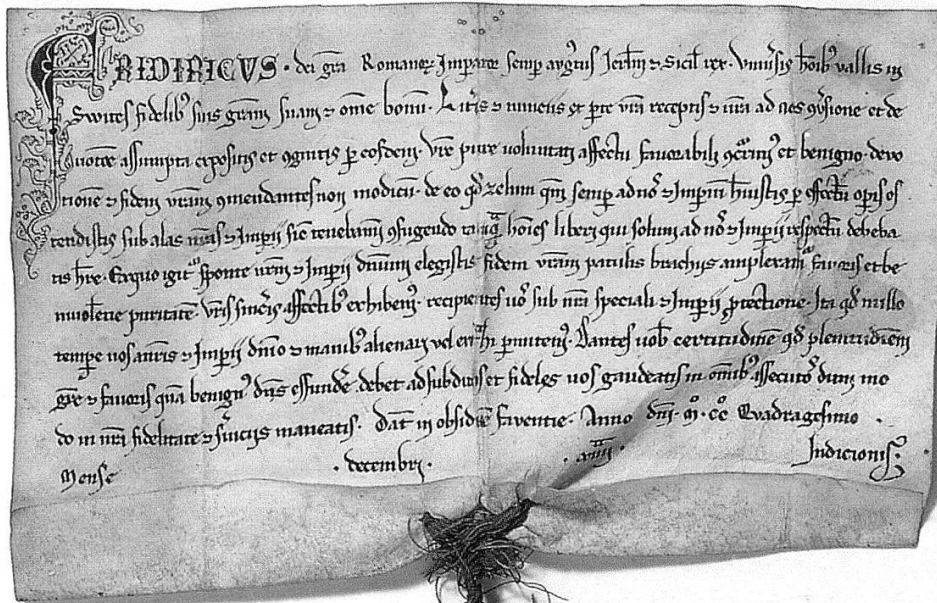 FRIDIRICVS · dei gra Romanoꝝ Imperator semp augustus Ierlm ⁊ Sicil rex. Vniuersis hoibꝰ vallis in
Swites fidelibꝰ suis gram suam ⁊ ome bonu. Litris ⁊ nunciis ex parte vra receptis ⁊ vra ad nos ꝯuersione et de
uotione assumpta expositis et cognitis per eosdem. Vre pure voluntati affectu fauorabili ꝯcurrimꝰ et benigno. deuo
tione ⁊ fidem vram ꝯmendantes non modicu. de eo qd zelum quem semp ad nos ⁊ Imperiu huistis per effectu operis os
tendistis sub alas nras ⁊ Imperii sic tenebamini ꝯfugiendo tanqua hoies liberi qui solum ad nos ⁊ Imperii respectu debeba
tis hre. Ex quo igitur sponte nrm ⁊ Imperii dnium elegistis fidem vram patulis brachiis amplexamur fauoris et be
niuolentie puritate. Vris sinceris affectibꝰ exhibemꝰ. recipientes uos sub nra speciali ⁊ Imperii protectione. Ita qd nullo
tempore uos a nris ⁊ Imperii dnio ⁊ manibꝰ alienari vel extrahi permittemꝰ. Dantes uob certitudine qd plenitudinem
gre ⁊ fauoris qua benignꝰ dns effundere debet ad subditos et fideles uos gaudeatis in omnibꝰ assecutos dum mo
do in nra fidelitate ⁊ seruiciis maneatis. Dat in obsidione fauentie. Anno dni. mo. cco Quadragesimo.
Mense . decembri . . xiiii . Indicionis.